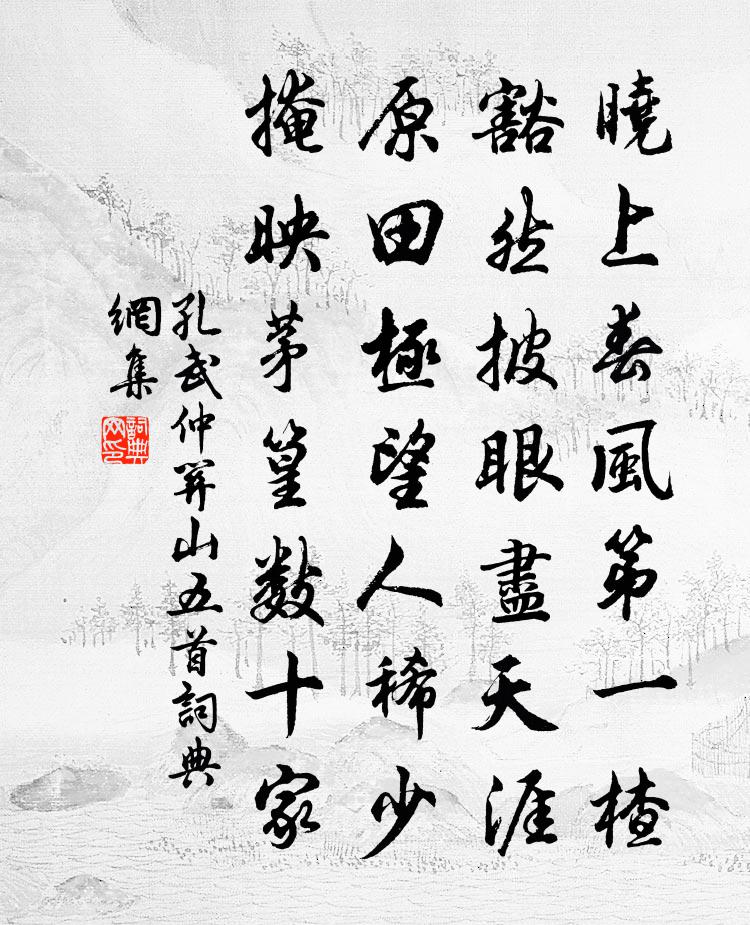 曉上春風第一楂
豁然披眼盡天涯
原田極望人稀少
掩映茅篁數十家
孔武仲笄山五首詞典
網集
詞典
网印